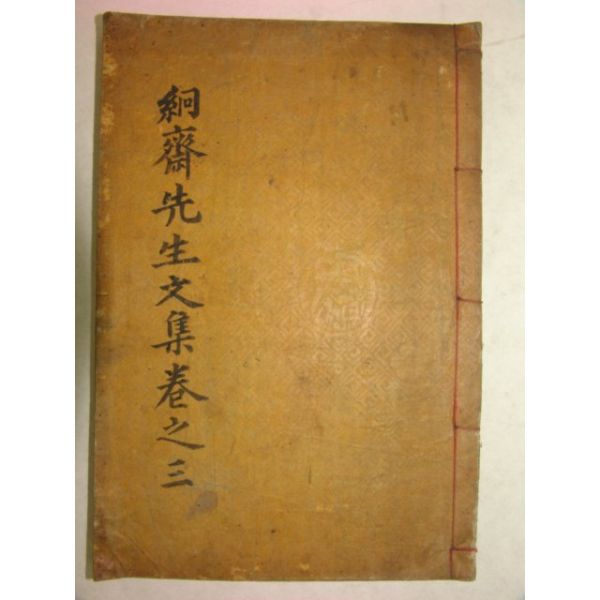 絅齋先生文集卷之三